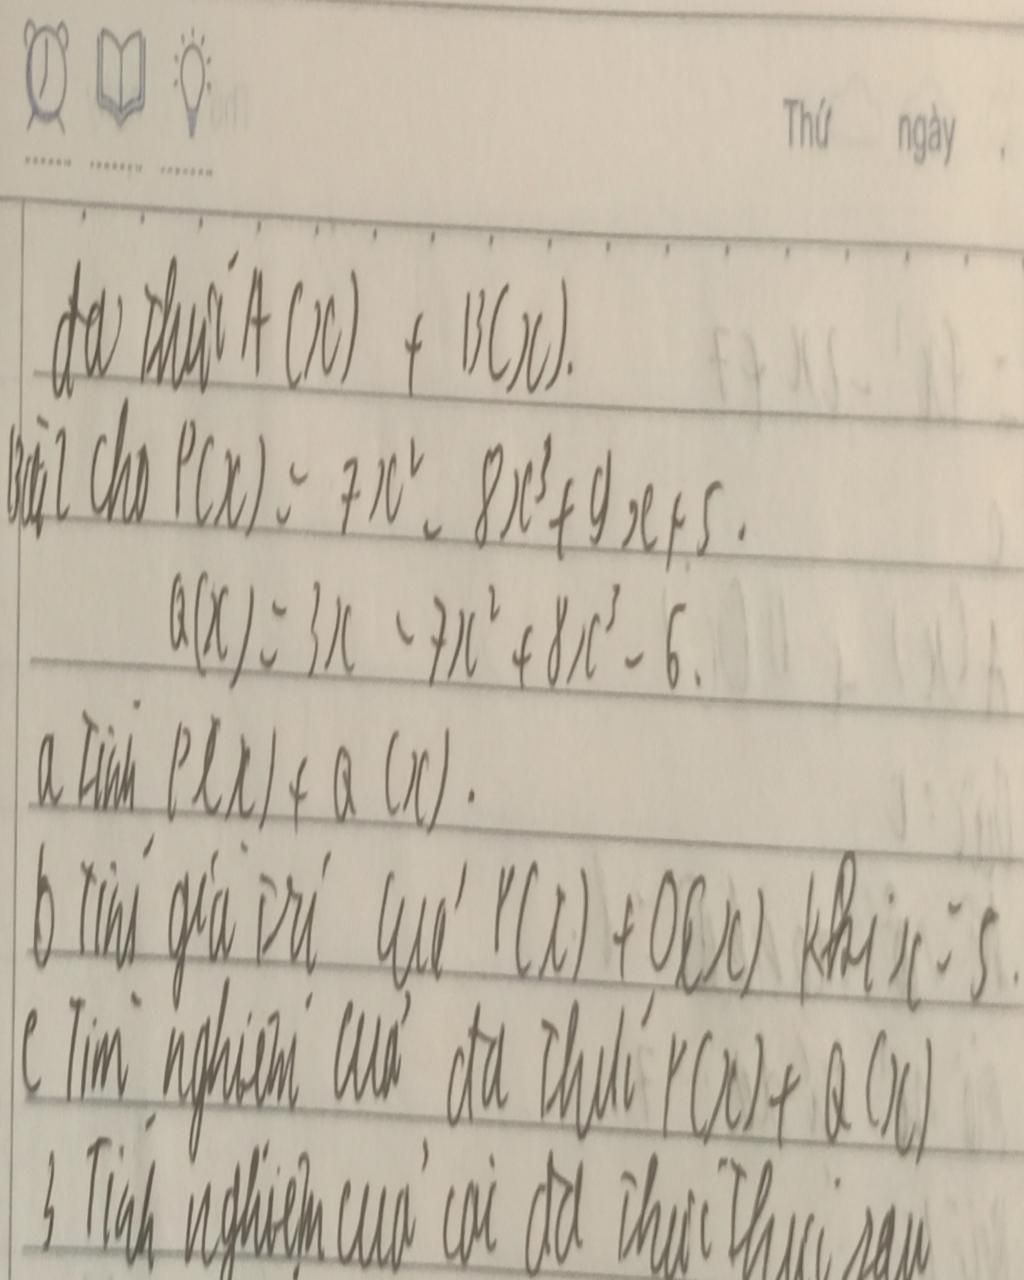 Thứ ngày
đa thức A(x) + B(x).
Bài 2 cho P(x) = 7x² - 8x³ + 9x + 5.
Q(x) = 3x - 7x² + 8x³ - 6.
a Tính P(x) + Q(x).
b Tính giá trị của P(x) + Q(x) khi x = 5.
c Tìm nghiệm của đa thức P(x) + Q(x)
3 Tính nghiệm của cái đa thức sau